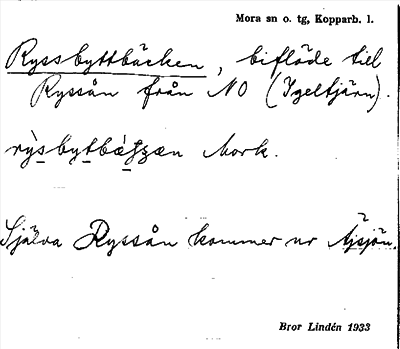 Mora sn o. tg, Kopparb. l.
Ryssbyttbäcken, biflöde till
Ryssån från NO (Igeltjärn).
Mork.
Själva Ryssån kommer ur Äjsjön.
Bror Lindén 1933